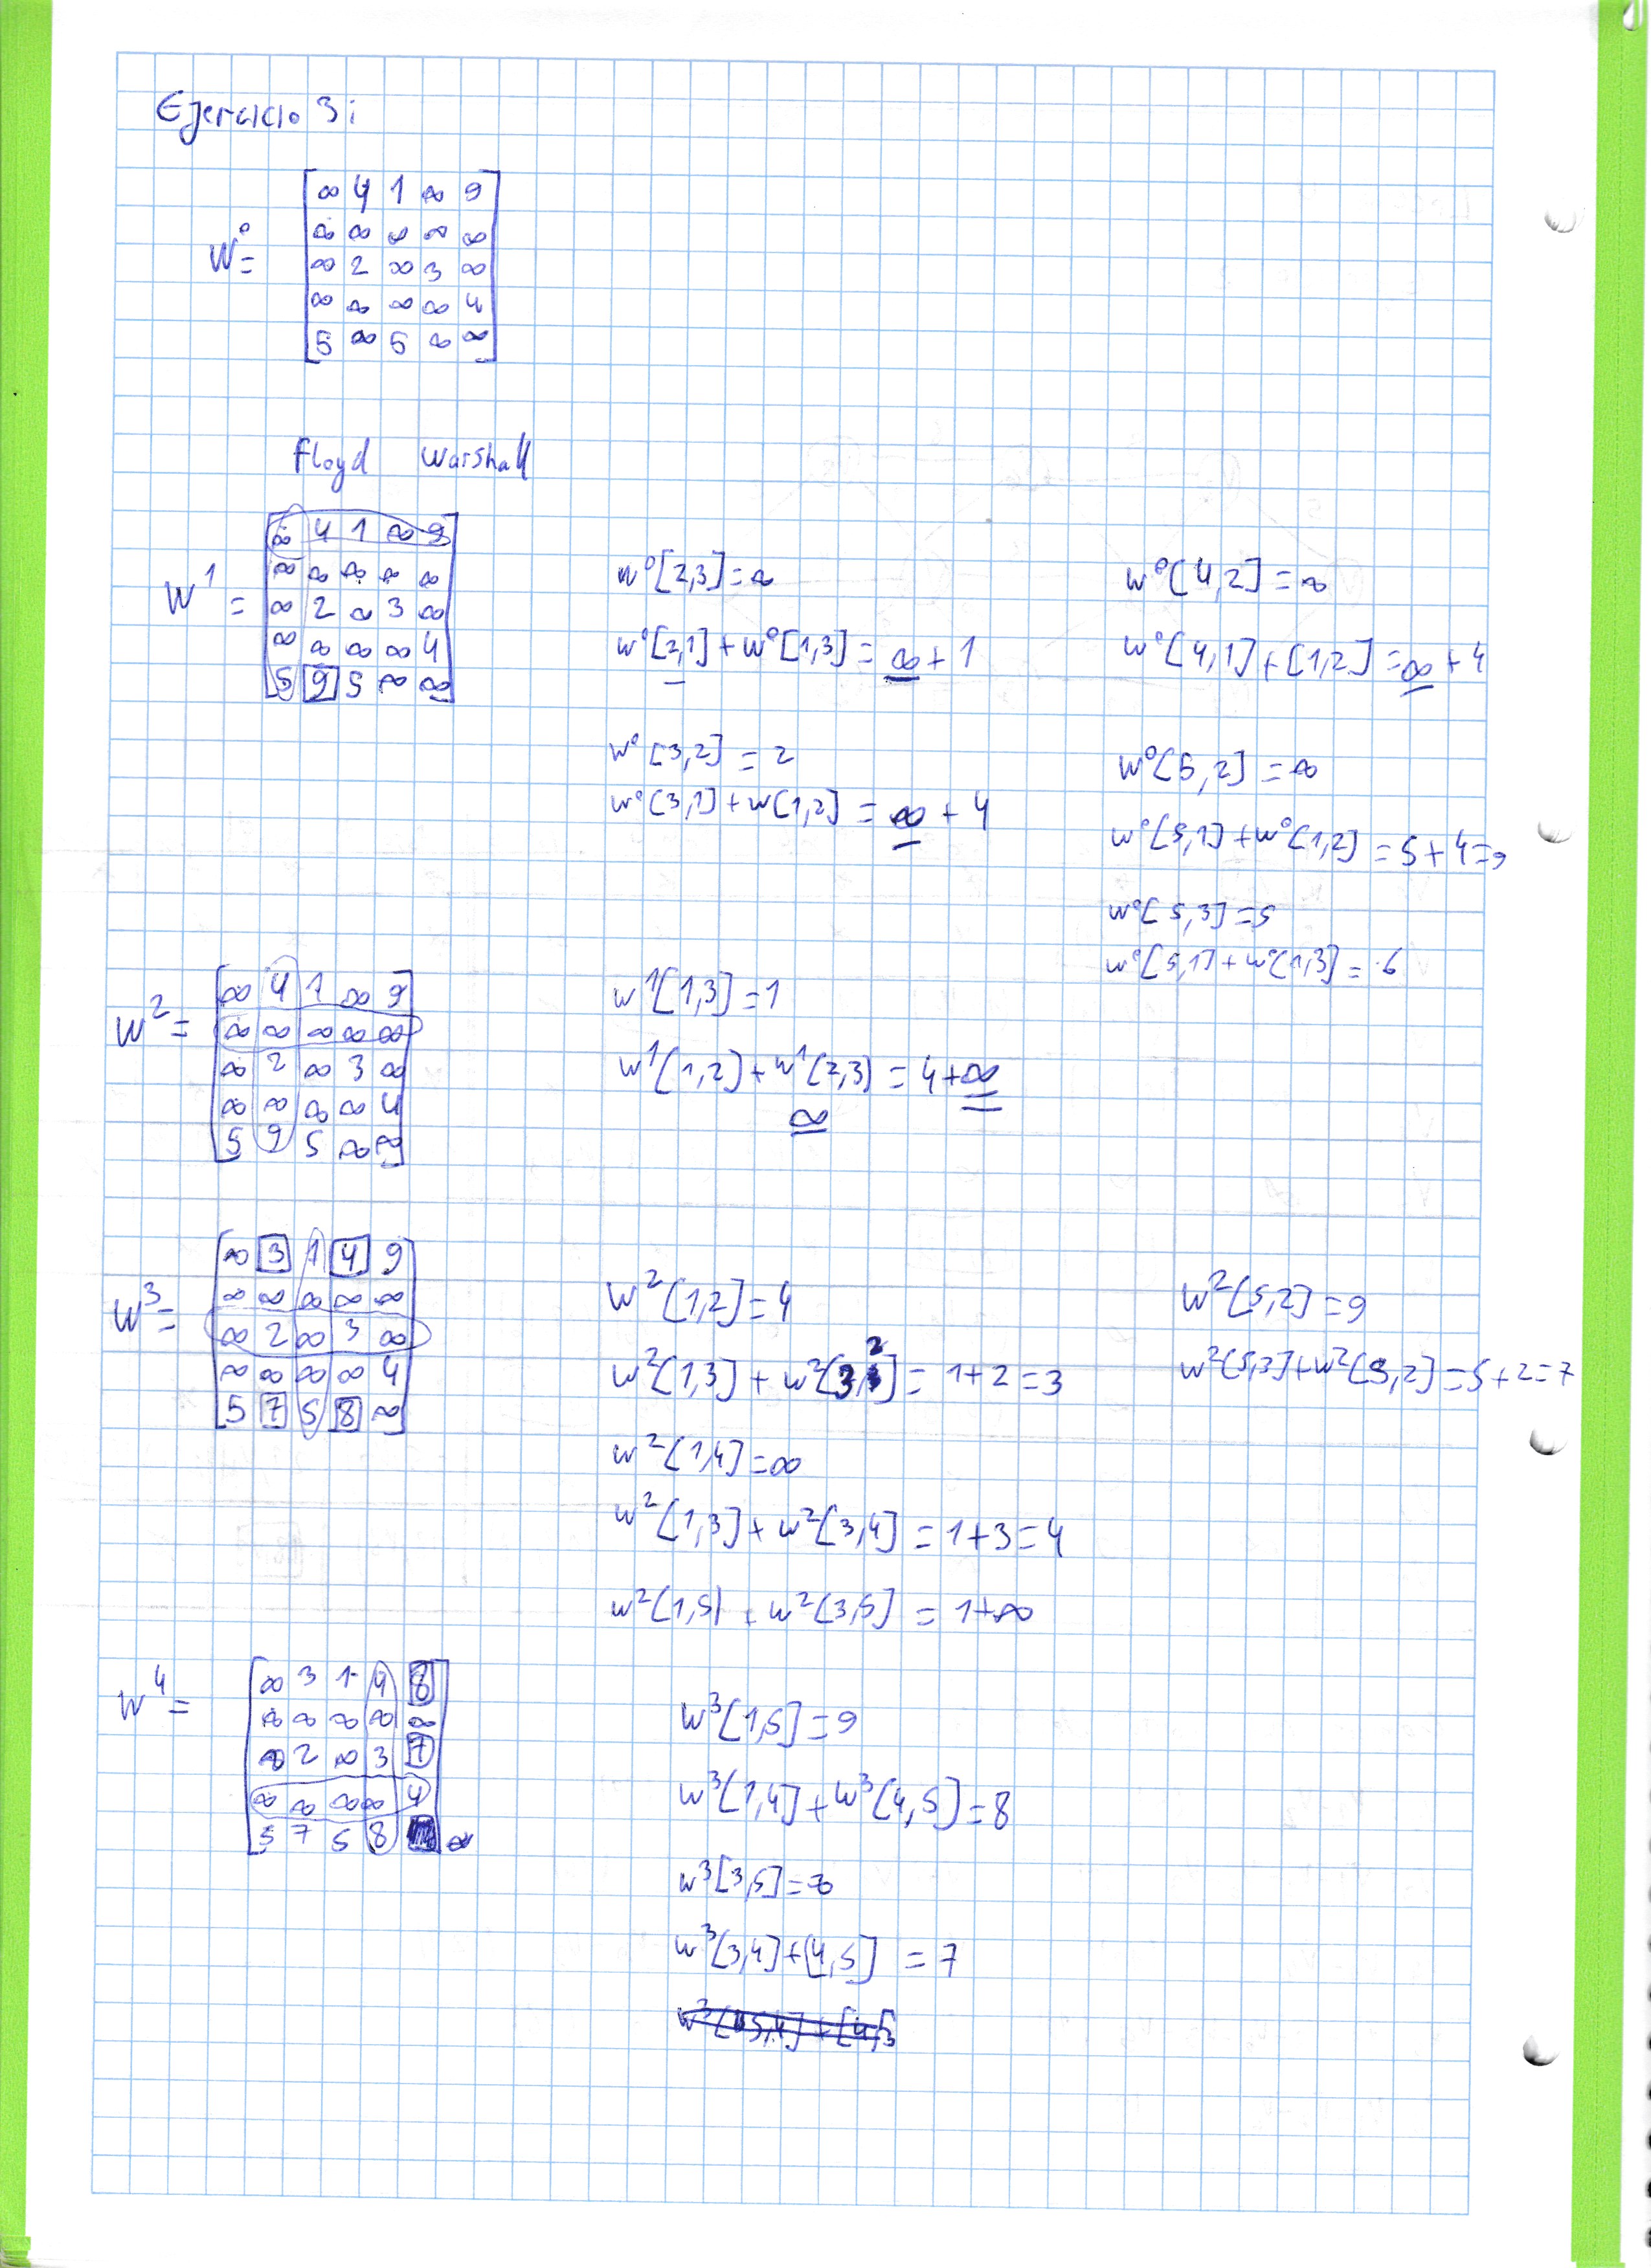 Ejercicio 3:
W⁰=
∞ 4 1 ∞ 9
∞ ∞ ∞ ∞ ∞
∞ 2 ∞ 3 ∞
∞ ∞ ∞ ∞ 4
5 ∞ 5 ∞ ∞
Floyd Warshall
W¹ =
∞ 4 1 ∞ 9
∞ ∞ ∞ ∞ ∞
∞ 2 ∞ 3 ∞
∞ ∞ ∞ ∞ 4
5 9 5 ∞ ∞
w⁰[2,3]=∞
w⁰[2,1]+w⁰[1,3]=∞+1
w⁰[3,2]=2
w⁰[3,1]+w[1,2]=∞+4
w⁰[4,2]=∞
w⁰[4,1]+[1,2]=∞+4
w⁰[5,2]=∞
w⁰[5,1]+w⁰[1,2]=5+4=9
w⁰[5,3]=5
w⁰[5,1]+w⁰[1,3]=6
W²=
∞ 4 1 ∞ 9
∞ ∞ ∞ ∞ ∞
∞ 2 ∞ 3 ∞
∞ ∞ ∞ ∞ 4
5 9 5 ∞ ∞
w¹[1,3]=1
w¹[1,2]+w¹[2,3]=4+∞
∞
W³=
∞ 3 1 4 9
∞ ∞ ∞ ∞ ∞
∞ 2 ∞ 3 ∞
∞ ∞ ∞ ∞ 4
5 7 5 8 ∞
w²[1,2]=4
w²[1,3]+w²[3,2]=1+2=3
w²[1,4]=∞
w²[1,3]+w²[3,4]=1+3=4
w²[1,5]+w²[3,5]=1+∞
w²[5,2]=9
w²[5,3]+w²[3,2]=5+2=7
W⁴=
∞ 3 1 4 8
∞ ∞ ∞ ∞ ∞
∞ 2 ∞ 3 7
∞ ∞ ∞ ∞ 4
5 7 5 8 ∞
w³[1,5]=9
w³[1,4]+w³[4,5]=8
w³[3,5]=∞
w³[3,4]+[4,5]=7